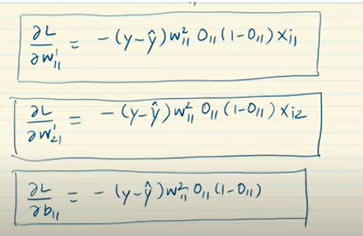 ∂L/∂w¹₁₁ = -(y-ŷ) w²₁₁ O₁₁ (1-O₁₁) xᵢ₁
∂L/∂w¹₂₁ = -(y-ŷ) w²₁₁ O₁₁ (1-O₁₁) xᵢ₂
∂L/∂b₁₁ = -(y-ŷ) w²₁₁ O₁₁ (1-O₁₁)